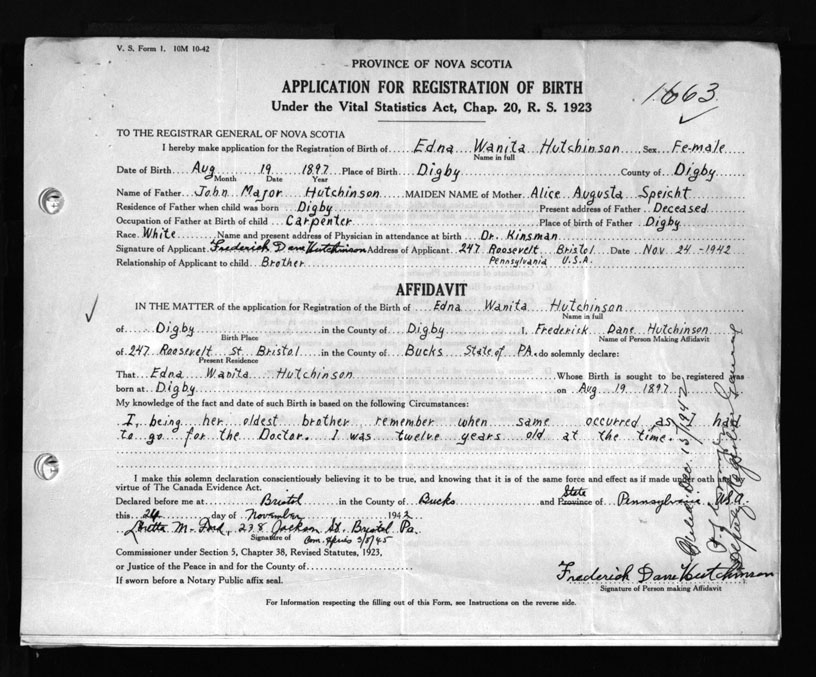 V. S. Form 1. 10M 10-42
PROVINCE OF NOVA SCOTIA
APPLICATION FOR REGISTRATION OF BIRTH
Under the Vital Statistics Act, Chap. 20, R. S. 1923
1663
TO THE REGISTRAR GENERAL OF NOVA SCOTIA
I hereby make application for the Registration of Birth of Edna Wanita Hutchinson Sex Fe-male
Name in full
Date of Birth Aug 19 1897 Place of Birth Digby County of Digby
Month Date Year
Name of Father John Major Hutchinson MAIDEN NAME of Mother Alice Augusta Speicht
Residence of Father when child was born Digby Present address of Father Deceased
Occupation of Father at Birth of child Carpenter Place of birth of Father Digby
Race White Name and present address of Physician in attendance at birth Dr. Kinsman
Signature of Applicant Frederick Dane Hutchinson Address of Applicant 247 Roosevelt Bristol Date Nov 24 - 1942
Relationship of Applicant to child Brother Pennsylvania U.S.A.
AFFIDAVIT
IN THE MATTER of the application for Registration of the Birth of Edna Wanita Hutchinson
Name in full
of Digby in the County of Digby I, Frederick Dane Hutchinson
Birth Place Name of Person Making Affidavit
of 247 Roosevelt St Bristol in the County of Bucks State of PA. do solemnly declare:
Present Residence
That Edna Wanita Hutchinson Whose Birth is sought to be registered was
born at Digby on Aug 19 1897
My knowledge of the fact and date of such Birth is based on the following Circumstances:
I, being her oldest brother, remember when same occurred, as I had
to go for the Doctor. I was twelve years old at the time.
I make this solemn declaration conscientiously believing it to be true, and knowing that it is of the same force and effect as if made under oath and
virtue of The Canada Evidence Act.
State
Declared before me at Bristol in the County of Bucks and Province of Pennsylvania USA.
this 24 day of November 1942
M. Ford, 238 Jackson St. Bristol Pa.
Signature of Com. Expires 3/5/45
Commissioner under Section 5, Chapter 38, Revised Statutes, 1923,
or Justice of the Peace in and for the County of
If sworn before a Notary Public affix seal.
Frederick Dane Hutchinson
Signature of Person making Affidavit
For Information respecting the filling out of this Form, see Instructions on the reverse side.
Dec. 15/1942
Deputy Registrar General